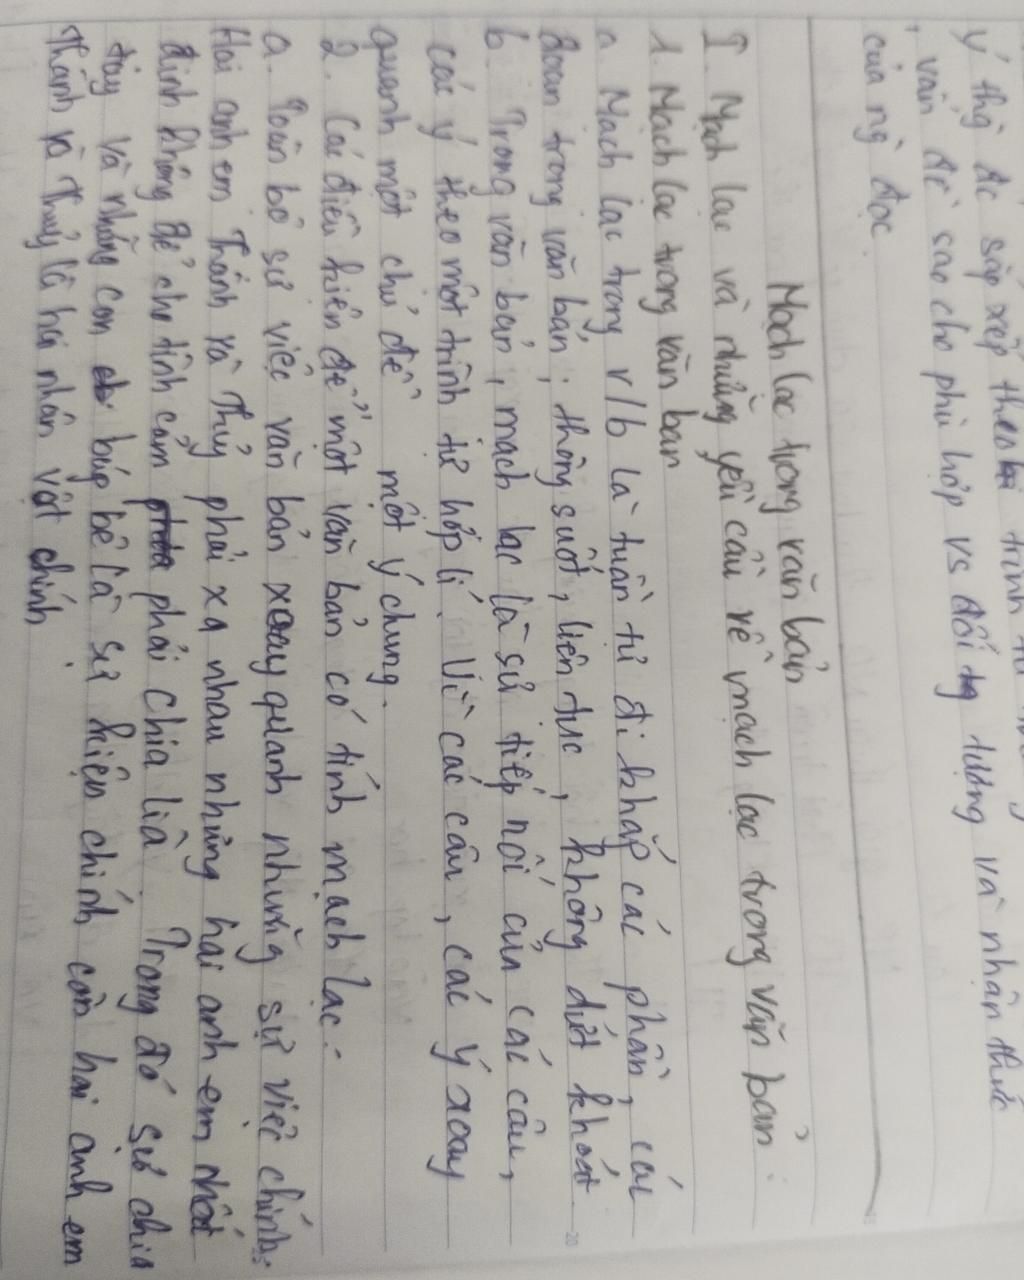 ý thg̀ đc sắp xếp theo trình tự
vấn đề sao cho phù hợp vs đối tượng và nhận thức
của ng̀ đọc.
Mạch lạc trong văn bản
I. Mạch lạc và những yêu cầu về mạch lạc trong văn bản:
1. Mạch lạc trong văn bản
a. Mạch lạc trong v/b là tuần tự đi khắp các phần, các
đoạn trong văn bản; thông suốt, liên tục, không dứt khoát.
b. Trong văn bản, mạch lạc là sự tiếp nối của các câu,
các ý theo một trình tự hợp lí. Vì các câu, các ý xoay
quanh một chủ đề một ý chung.
2. Các điều kiện để một văn bản có tính mạch lạc:
a. Toàn bộ sự việc văn bản xoay quanh những sự việc chính:
Hai anh em Thành và Thủy phải xa nhau nhưng hai anh em nhất
định không để cho tình cảm phải chia lìa. Trong đó sự chia
tay và những con búp bê là sự kiện chính còn hai anh em
Thành và Thuỷ là hai nhân vật chính.